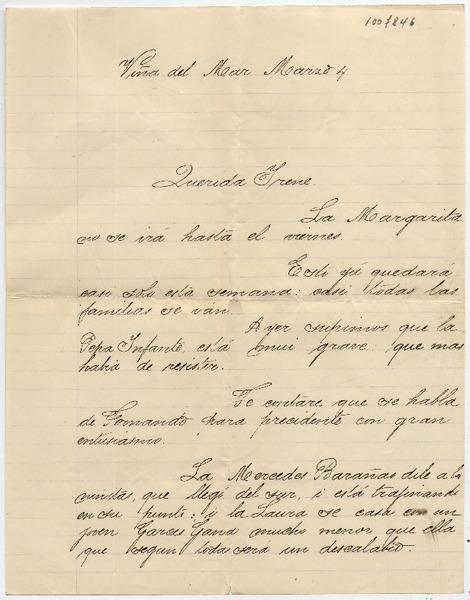 1007846
Viña del Mar Marzo 4
Querida Irene.
La Margarita
no se irá hasta el viernes.
Esto yá quedará
casi sola esta semana: casi todas las
familias se ván.
Ayer supimos que la
Pepa Infante, está mui grave: que mas
habiá de resistir.
Te contare que se habla
de Fernando para presidente con gran
entusiasmo.
La Mercedes Barañao dile a la
que llegó del sur, i está
en su punto: i la Laura se casa con un
joven Garces Gana mucho menor que ella
que segun toda será un descalabro.